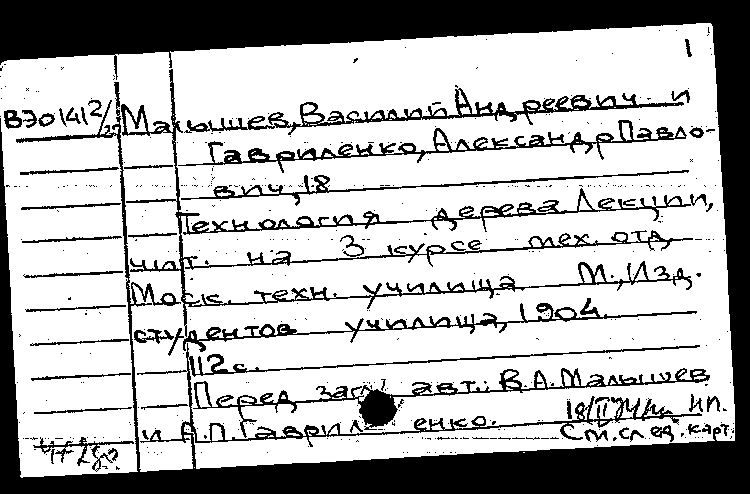 1
ВЭ01412/27 Малышев, Василий Андреевич и
Гавриленко, Александр Павло-
вич, 18
Технология дерева. Лекции,
чит. на 3 курсе мех. отд.
Моск. техн. училища. М., Изд.
студентов училища, 1904.
112 с.
Перед загл. авт.: В.А. Малышев
и А.П. Гавриленко. НП.
См. след. карт.